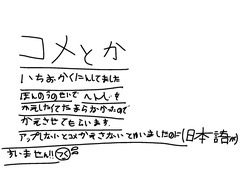 コメとか
いちおかくにんしてました
ほんのうのせいで へんじを
かえしたくてたまらなかったので
かえさせてもらいます。
アップしないとコメかえさないとかいいましたのに(日本語が)
すいません!!